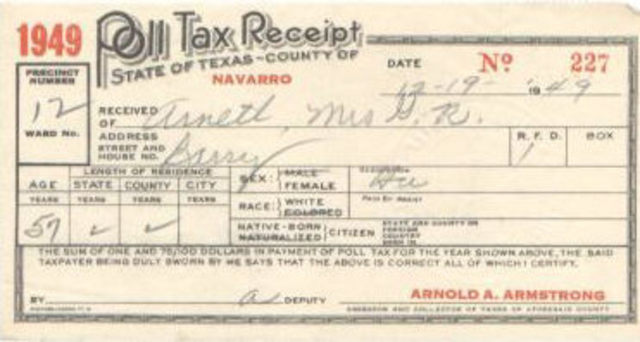 1949 Poll Tax Receipt
STATE OF TEXAS-COUNTY OF
NAVARRO
DATE Nº 227
12-19- 1949
PRECINCT NUMBER
12
WARD No.
RECEIVED OF Arnett, Mrs G. R.
ADDRESS STREET AND HOUSE NO. Barry
R. F. D. BOX
1
LENGTH OF RESIDENCE
AGE STATE COUNTY CITY
YEARS YEARS YEARS YEARS
57
SEX: MALE FEMALE
RACE: WHITE COLORED
NATIVE-BORN NATURALIZED CITIZEN
STATE AND COUNTY OR FOREIGN COUNTRY BORN IN
THE SUM OF ONE AND 75/100 DOLLARS IN PAYMENT OF POLL TAX FOR THE YEAR SHOWN ABOVE, THE SAID
TAXPAYER BEING DULY SWORN BY ME SAYS THAT THE ABOVE IS CORRECT ALL OF WHICH I CERTIFY.
BY DEPUTY
ARNOLD A. ARMSTRONG
ASSESSOR AND COLLECTOR OF TAXES OF AFORESAID COUNTY